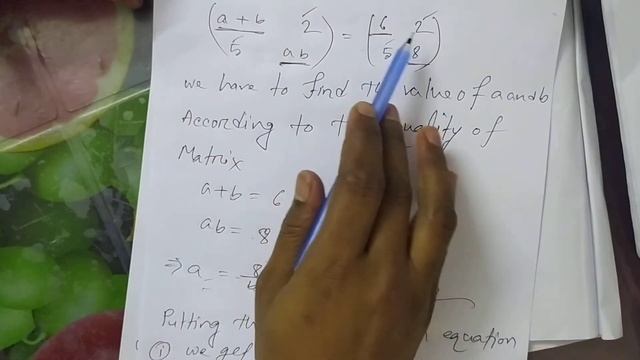 a + b 2 = 6 2
5 ab 5 8
we have to find value of a and b
According to of
Matrix
a+b = 6
ab = 8
⇒ a = 8
Putting equation
(i) we get